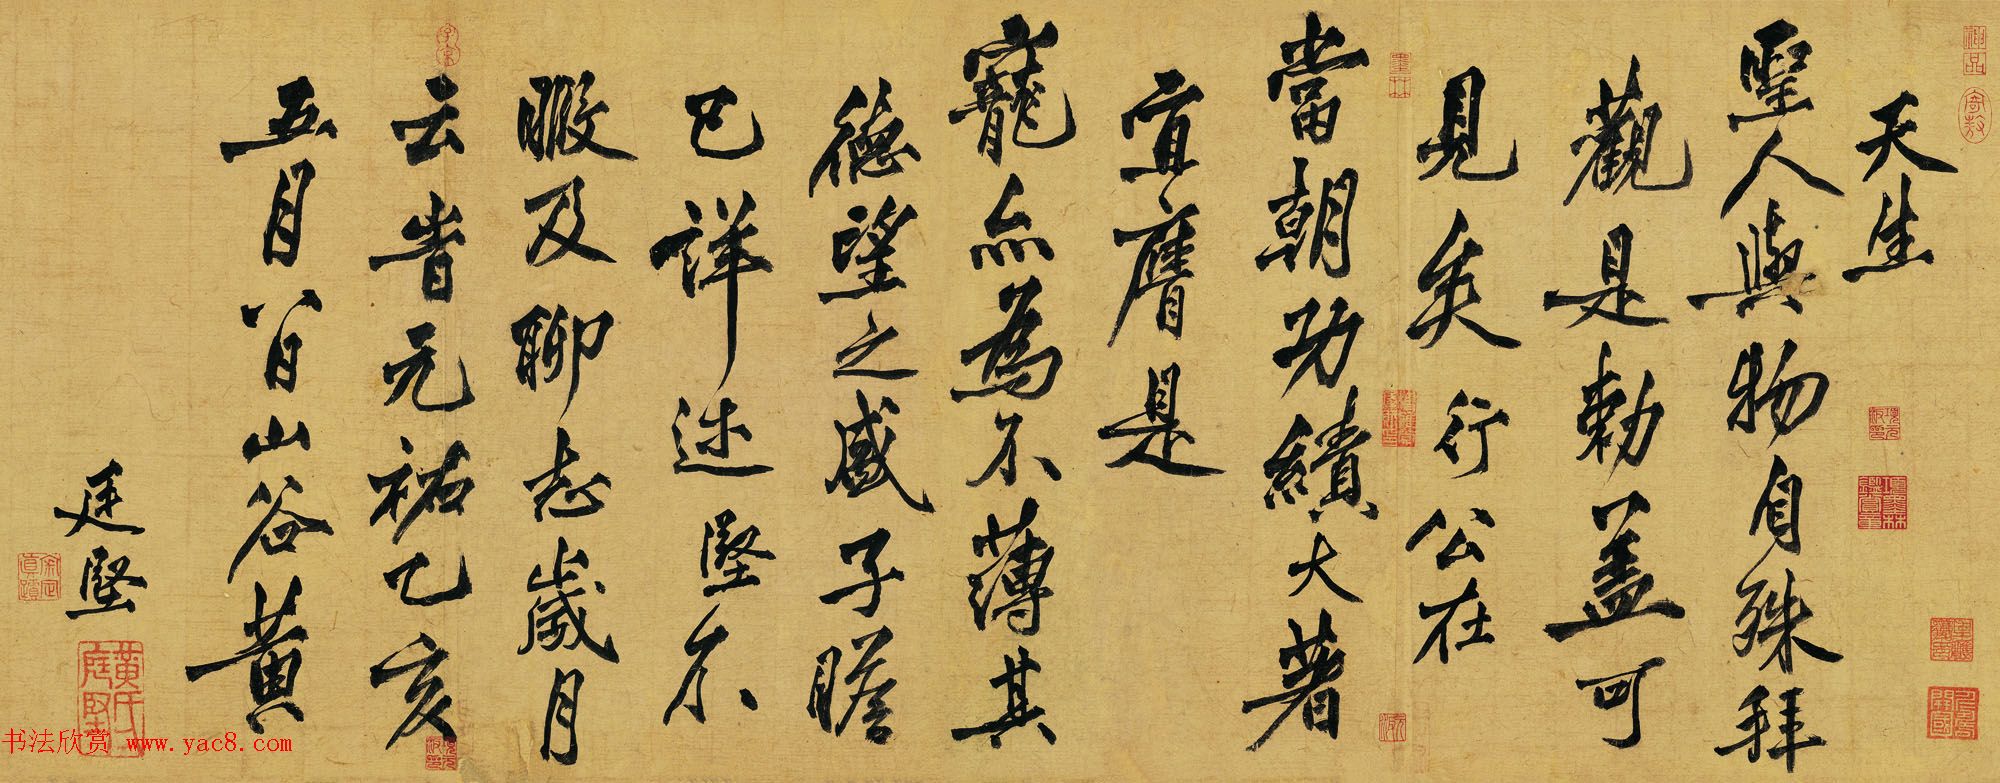 天生
聖人與物自殊拜
觀是勅蓋可
見矣行公在
當朝功績大著
宜膺是
寵亦為不薄其
德望之盛子瞻
已詳述堅不
暇及聊志歲月
云耆元祐乙亥
五月八日山谷黃
廷堅
黃氏庭堅
书法欣赏 www.yac8.com